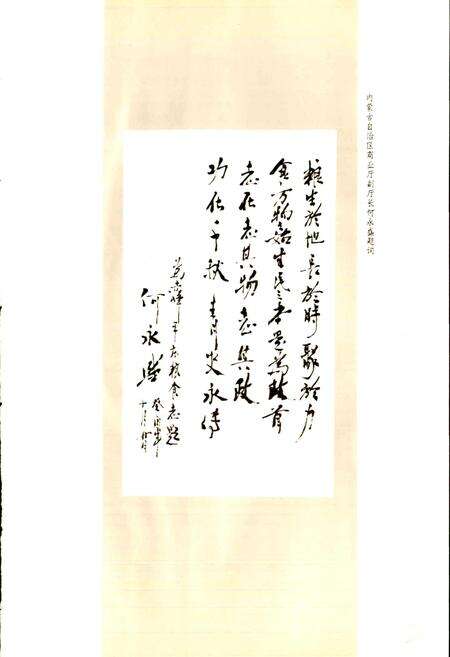 内蒙古自治区商业厅副厅长何永盛题词
粮生於地長於時聚於力
食万物始生民之本農為政首
志在志其物志其政
功在千秋青史永傳
為 粮食志題
何永盛
癸酉年
十月